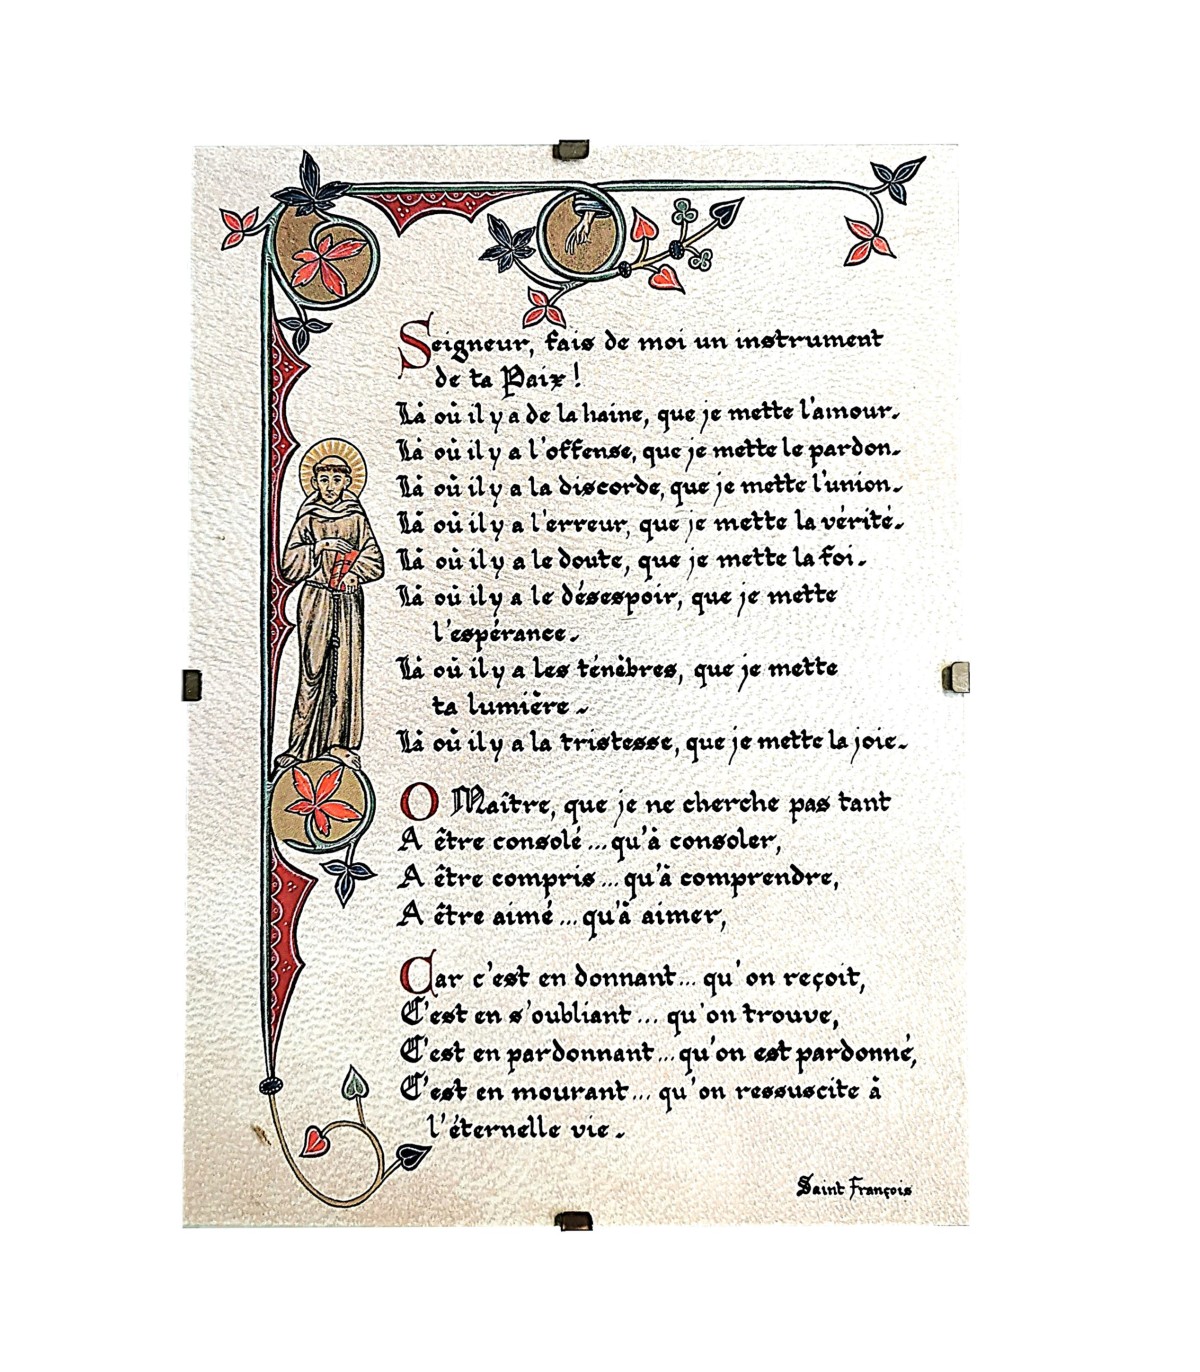 Seigneur, fais de moi un instrument
de ta Paix !
Là où il y a de la haine, que je mette l'amour.
Là où il y a l'offense, que je mette le pardon.
Là où il y a la discorde, que je mette l'union.
Là où il y a l'erreur, que je mette la vérité.
Là où il y a le doute, que je mette la foi.
Là où il y a le désespoir, que je mette
l'espérance.
Là où il y a les ténèbres, que je mette
ta lumière.
Là où il y a la tristesse, que je mette la joie.
O Maître, que je ne cherche pas tant
A être consolé ... qu'à consoler,
A être compris ... qu'à comprendre,
A être aimé ... qu'à aimer,
Car c'est en donnant ... qu'on reçoit,
C'est en s'oubliant ... qu'on trouve,
C'est en pardonnant ... qu'on est pardonné,
C'est en mourant ... qu'on ressuscite à
l'éternelle vie.
Saint François